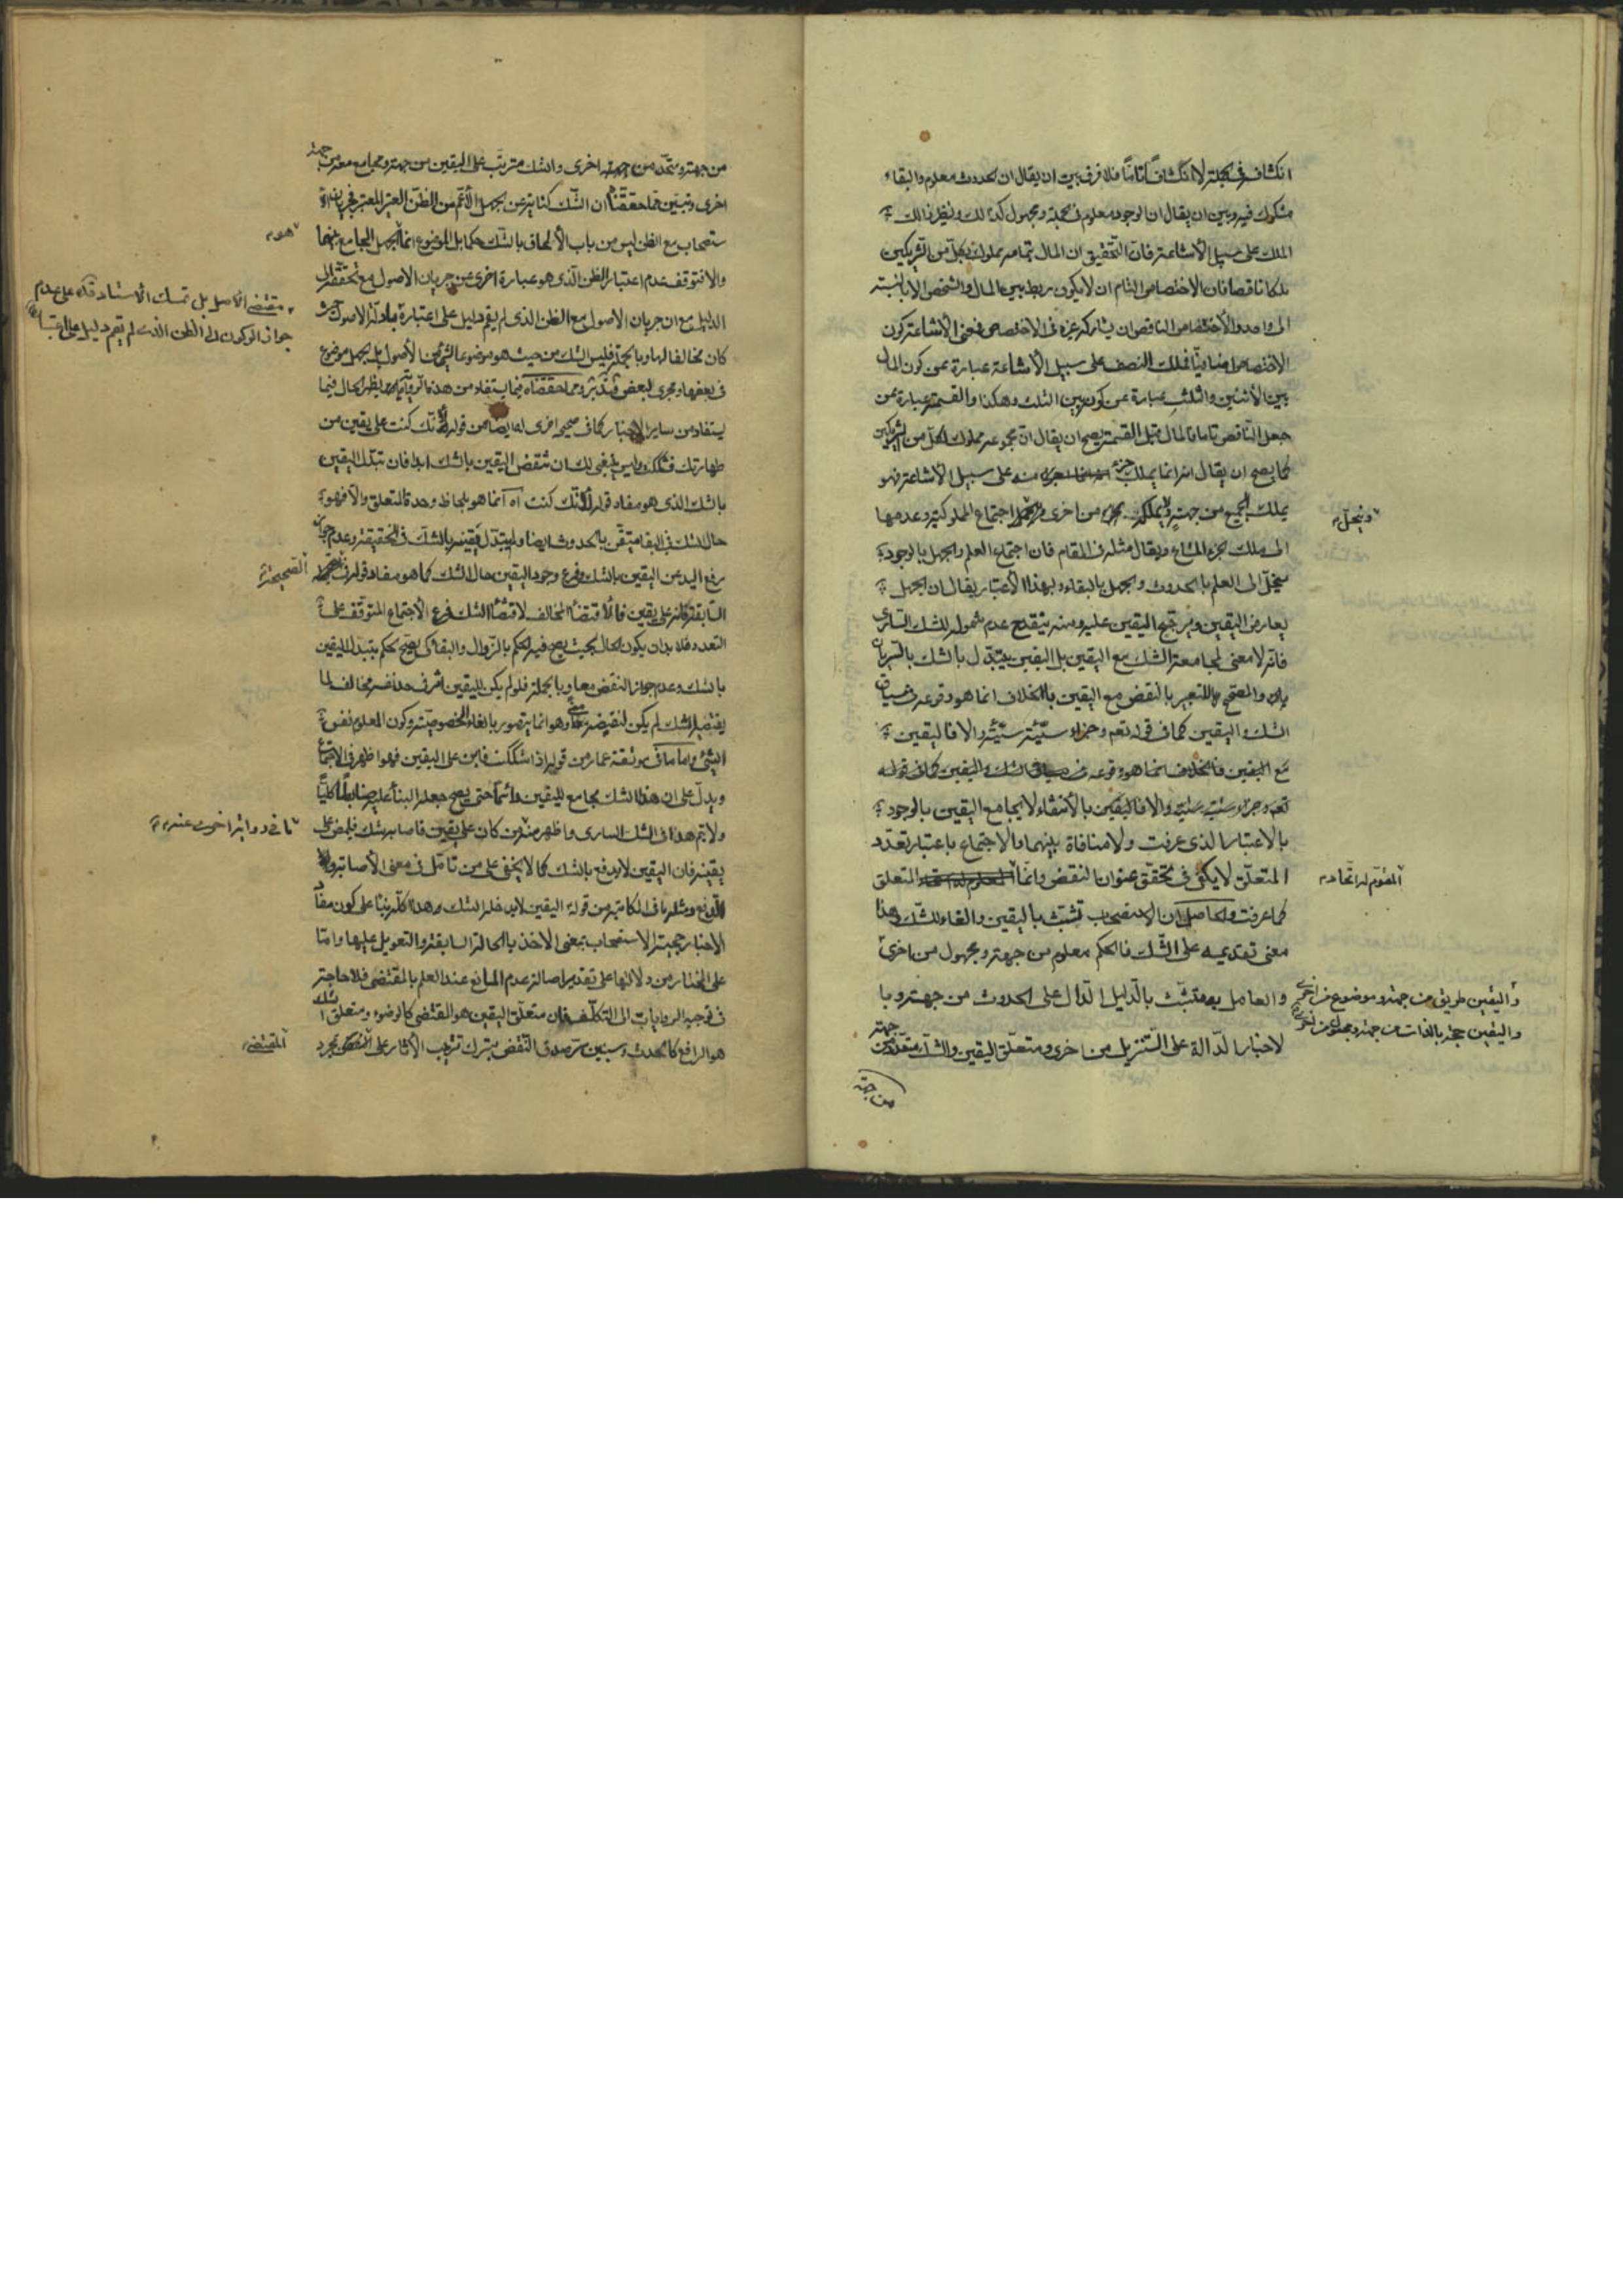 انكشاف في الجملة لا انكشافاً تامّاً فلا فرق بين ان يقال ان الحدوث معلوم والبقاء
مشكوك فيه وبين ان يقال ان الوجود معلوم في الجملة ومجهول كذلك ونظير ذلك
الملك على سبيل الاشاعة فان التحقيق ان المال بتمامه مملوك لكل من الشريكين
ملكا ناقصا فان الاختصاص التام ان لا يكون ربط بين المال والشخص الا بالنسبة
الى واحد والاختصاص الناقص ان يشاركه غيره في الاختصاص فمعنى الاشاعة كون
الاختصاص فملك النصف على سبيل الاشاعة عبارة عن كون المال
بين الاثنين والثلث عبارة عن كونه بين الثلث وهكذا والقسمة عبارة عن
جعل الناقص تاما فالمال قبل القسمة يصح ان يقال ان مجموعه مملوك لكل من الشريكين
كما يصح ان يقال انه انما يملك جزء منه على سبيل الاشاعة فهو
يملك الجميع من جهة ولا يملكه من اخرى اجتماع المملوكية وعدمها
وينحل
الى ملك الجزء المشاع ويقال مثله في المقام فان اجتماع العلم والجهل بالوجود
ينحل الى العلم بالحدوث والجهل بالبقاء وبهذا الاعتبار يقال ان الجهل
يعارض اليقين ويرجح اليقين عليه ومنه ينقدح عدم شموله للشك الساري
فانه لا معنى لمجامعة الشك مع اليقين بل اليقين يتبدل بالشك بالسريان
والمصحح للتعبير بالنقض مع اليقين بالخلاف انما هو وقوعه في سياق
الشك واليقين كما في قوله تعم وجزاء سيّئة سيّئة والا فاليقين
مع اليقين فالخلاف انما هو وقوعه في سياق الشك واليقين كما في قوله
تعم وجزاء سيئة سيئة والا فاليقين بالانتفاء لا يجامع اليقين بالوجود
بالاعتبار الذي عرفت ولا منافاة بينهما والاجتماع باعتبار تعدد
المتعلق لا يكفي في تحقق عنوان النقض وانما المتعلق
المقوم له اتحاد
كما عرفت والحاصل ان الاستصحاب تشبث باليقين والغاء للشك وهذا
معنى تقديمه على الشك فالحكم معلوم من جهة ومجهول من اخرى
واليقين طريق من جهة وموضوع من اخرى
والعامل متشبث بالدليل الدال على الحدوث من جهة وبا
واليقين حجة بالذات من جهة ومجعول من اخرى
لاخبار الدالة على التنزيل من اخرى ومتعلق اليقين والشك متعدد من جهة
من جهة
من جهة ومتحد من جهة اخرى والشك مترتب على اليقين من جهة ومجامع معه من جهة
اخرى وتبين مما حققنا ان الشك كناية عن الجهل الاعم من الظن الغير المعتبر فجريان الا
ستصحاب مع الظن ليس من باب الالحاق بالشك حكما بل الموضوع انما هو الجهل الجامع بينهما
والا فتوقف عدم اعتبار الظن الذي هو عبارة اخرى عن جريان الاصول مع تحققه الى
مقتضى الاصل بل تمسك الاستاد قده على عدم
جواز الركون الى الظن الذي لم يقم دليل على اعتباره
الدليل مع ان جريان الاصول مع الظن الذي لم يقم دليل على اعتباره
كان مخالفا لها وبالجملة فليس الشك من حيث هو موضوعا لشيء من الاصول بل الجهل موضوع
في بعضها ومجرى لبعض فتدبر ومما حققناه فيما يستفاد من هذه الرواية يظهر الحال فيما
يستفاد من ساير الاخبار كما في صحيحة اخرى له ايضا من قوله لانك كنت على يقين من
طهارتك فشككت وليس ينبغي لك ان تنقض اليقين بالشك ابدا فان تبدل اليقين
بالشك الذي هو مفاد قوله لانك كنت اه انما هو بلحاظ وحدة المتعلق والا فهو
حال الشك في البقا متيقن بالحدوث ايضا ولم يتبدل يقينه بالشك في الحقيقة وعدم جواز
رفع اليد عن اليقين بالشك فرع وجود اليقين حال الشك كما هو مفاد قوله في
الصحيحة
السابقة فانه على يقين فالاقتضاء المخالف لاقتضاء الشك فرع الاجتماع المتوقف على
التعدد فلا بد ان يكون الحال بحيث يصح فيه الحكم بالزوال والبقا كي يصح الحكم بتبدل اليقين
بالشك وعدم جواز النقض معا وبالجملة فلو لم يكن لليقين اثر في حد نفسه مخالف لما
يقتضيه الشك لم يكن لنقيضه معنى وهو انما يتصور بالغاء الخصوصية وكون المعلوم نفس
الشيء واما ما في موثقة عمار من قوله اذا شككت فابن على اليقين فهو اظهر في الاجتماع
ويدل على ان هذا الشك مجامع لليقين دائماً حتى يصح جعل البناء عليه ضابطاً كليّاً
ولا يتم هذا في الشك الساري واظهر منه من كان على يقين فاصابه شك فليمض على
ما في رواية اخرى عنه
يقينه فان اليقين لا يدفع بالشك كما لا يخفى على من تامل في معنى الاصابة
الدفع ومثله ما في المكاتبة من قوله اليقين لا يدخله الشك وهذا كله بناء على كون مفاد
الاخبار حجية الاستصحاب بمعنى الاخذ بالحالة السابقة والتعويل عليها واما
على المختار من دلالتها على تقدير اصالة عدم المانع عند العلم بالمقتضى فلا حاجة
في توجيه الروايات الى التكلف فان متعلق اليقين هو المقتضى كالوضوء ومتعلق الشك
هو الرافع كالحدث وسيتبين سر صدق النقض بترك ترتيب الاثار على المقتضى بمجرد